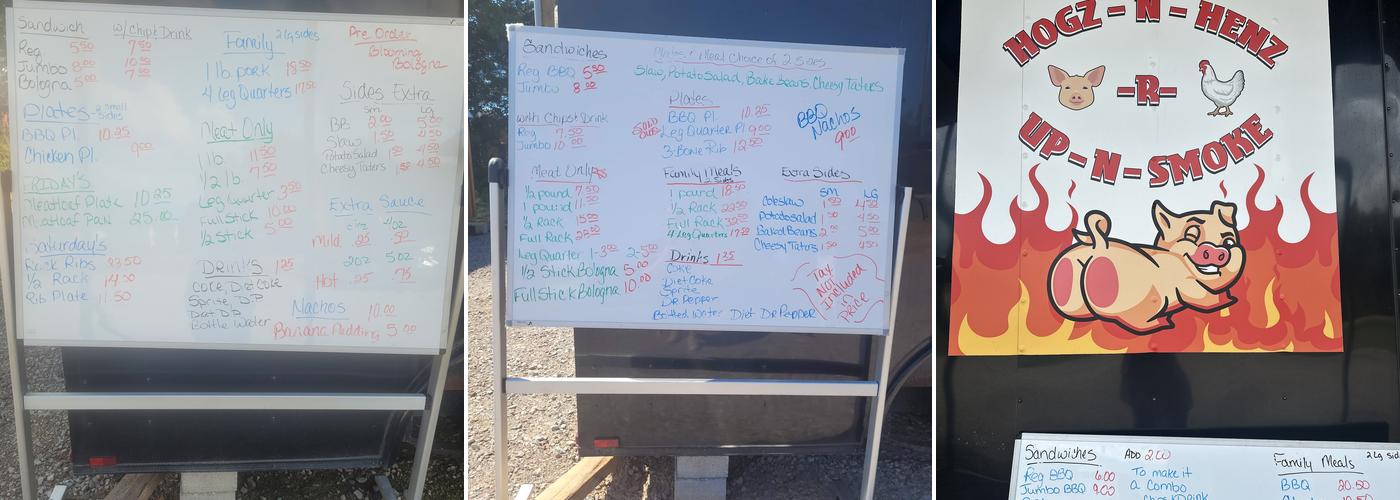 Sandwich w/Chips & Drink
Reg 5.50 7.50
Jumbo 8.00 10.50
Bologna 5.00 7.00
Plates 2 small sides
BBQ Pl. 10.25
Chicken Pl. 9.00
FRIDAY'S
Meatloaf Plate 10.25
Meatloaf Pan 25.00
Saturday's
Rack Ribs
1/2 Rack
Rib Plate 11.50
Family 2 lg sides
1 lb. pork 18.50
4 Leg Quarters 17.50
Meat Only
1 lb. 11.50
1/2 lb. 7.50
Leg Quarter
Full Stick 10.00
1/2 Stick 5.00
Drinks 1.25
Coke, Diet Coke
Sprite, D.P
Diet DP
Bottle Water
Pre Order
Blooming
Bologna
Sides Extra
Sm LG
BB 2.00 5.00
Slaw 1.50 4.50
Potato Salad 1.50 4.50
Cheesy Taters 1.50 4.50
Extra Sauce
2oz 4oz
Mild .25 .50
2oz 5oz
Hot .25 .75
Nachos 10.00
Banana Pudding 5.00
Sandwiches
Reg BBQ 5.50
Jumbo 8.00
with Chips & Drink
Reg 7.50
Jumbo 10.00
Meat Only
1/2 pound 7.50
1 pound 11.50
1/2 Rack 15.00
Full Rack
Leg Quarter 1-3.00 2-5.00
1/2 Stick Bologna 5.00
Full Stick Bologna 10.00
Plates / Meal Choice of 2 Sides
Slaw, Potato Salad, Bake Beans, Cheesy Taters
Plates
BBQ Pl. 10.25
Leg Quarter Pl. 9.00
3-Bone Rib 12.50
BBQ
Nachos
9.00
Family Meals
2 Sides
1 pound 18.50
1/2 Rack 22.50
Full Rack
4 Leg Quarters
Drinks 1.25
Coke
Diet Coke
Sprite
Dr Pepper
Bottled Water Diet Dr Pepper
Extra Sides
SM LG
Coleslaw 1.50 4.50
Potato Salad 1.50 4.50
Baked Beans 2.00 5.00
Cheesy Taters 1.50 4.50
Tax
Not
Included
in
Price
HOGZ-N-HENZ
-R-
UP-N-SMOKE
Sandwiches ADD 2.00
Reg BBQ 6.00 To make it
Jumbo BBQ 9.00 a Combo
Family Meals 2 Lg sid
BBQ 20.50